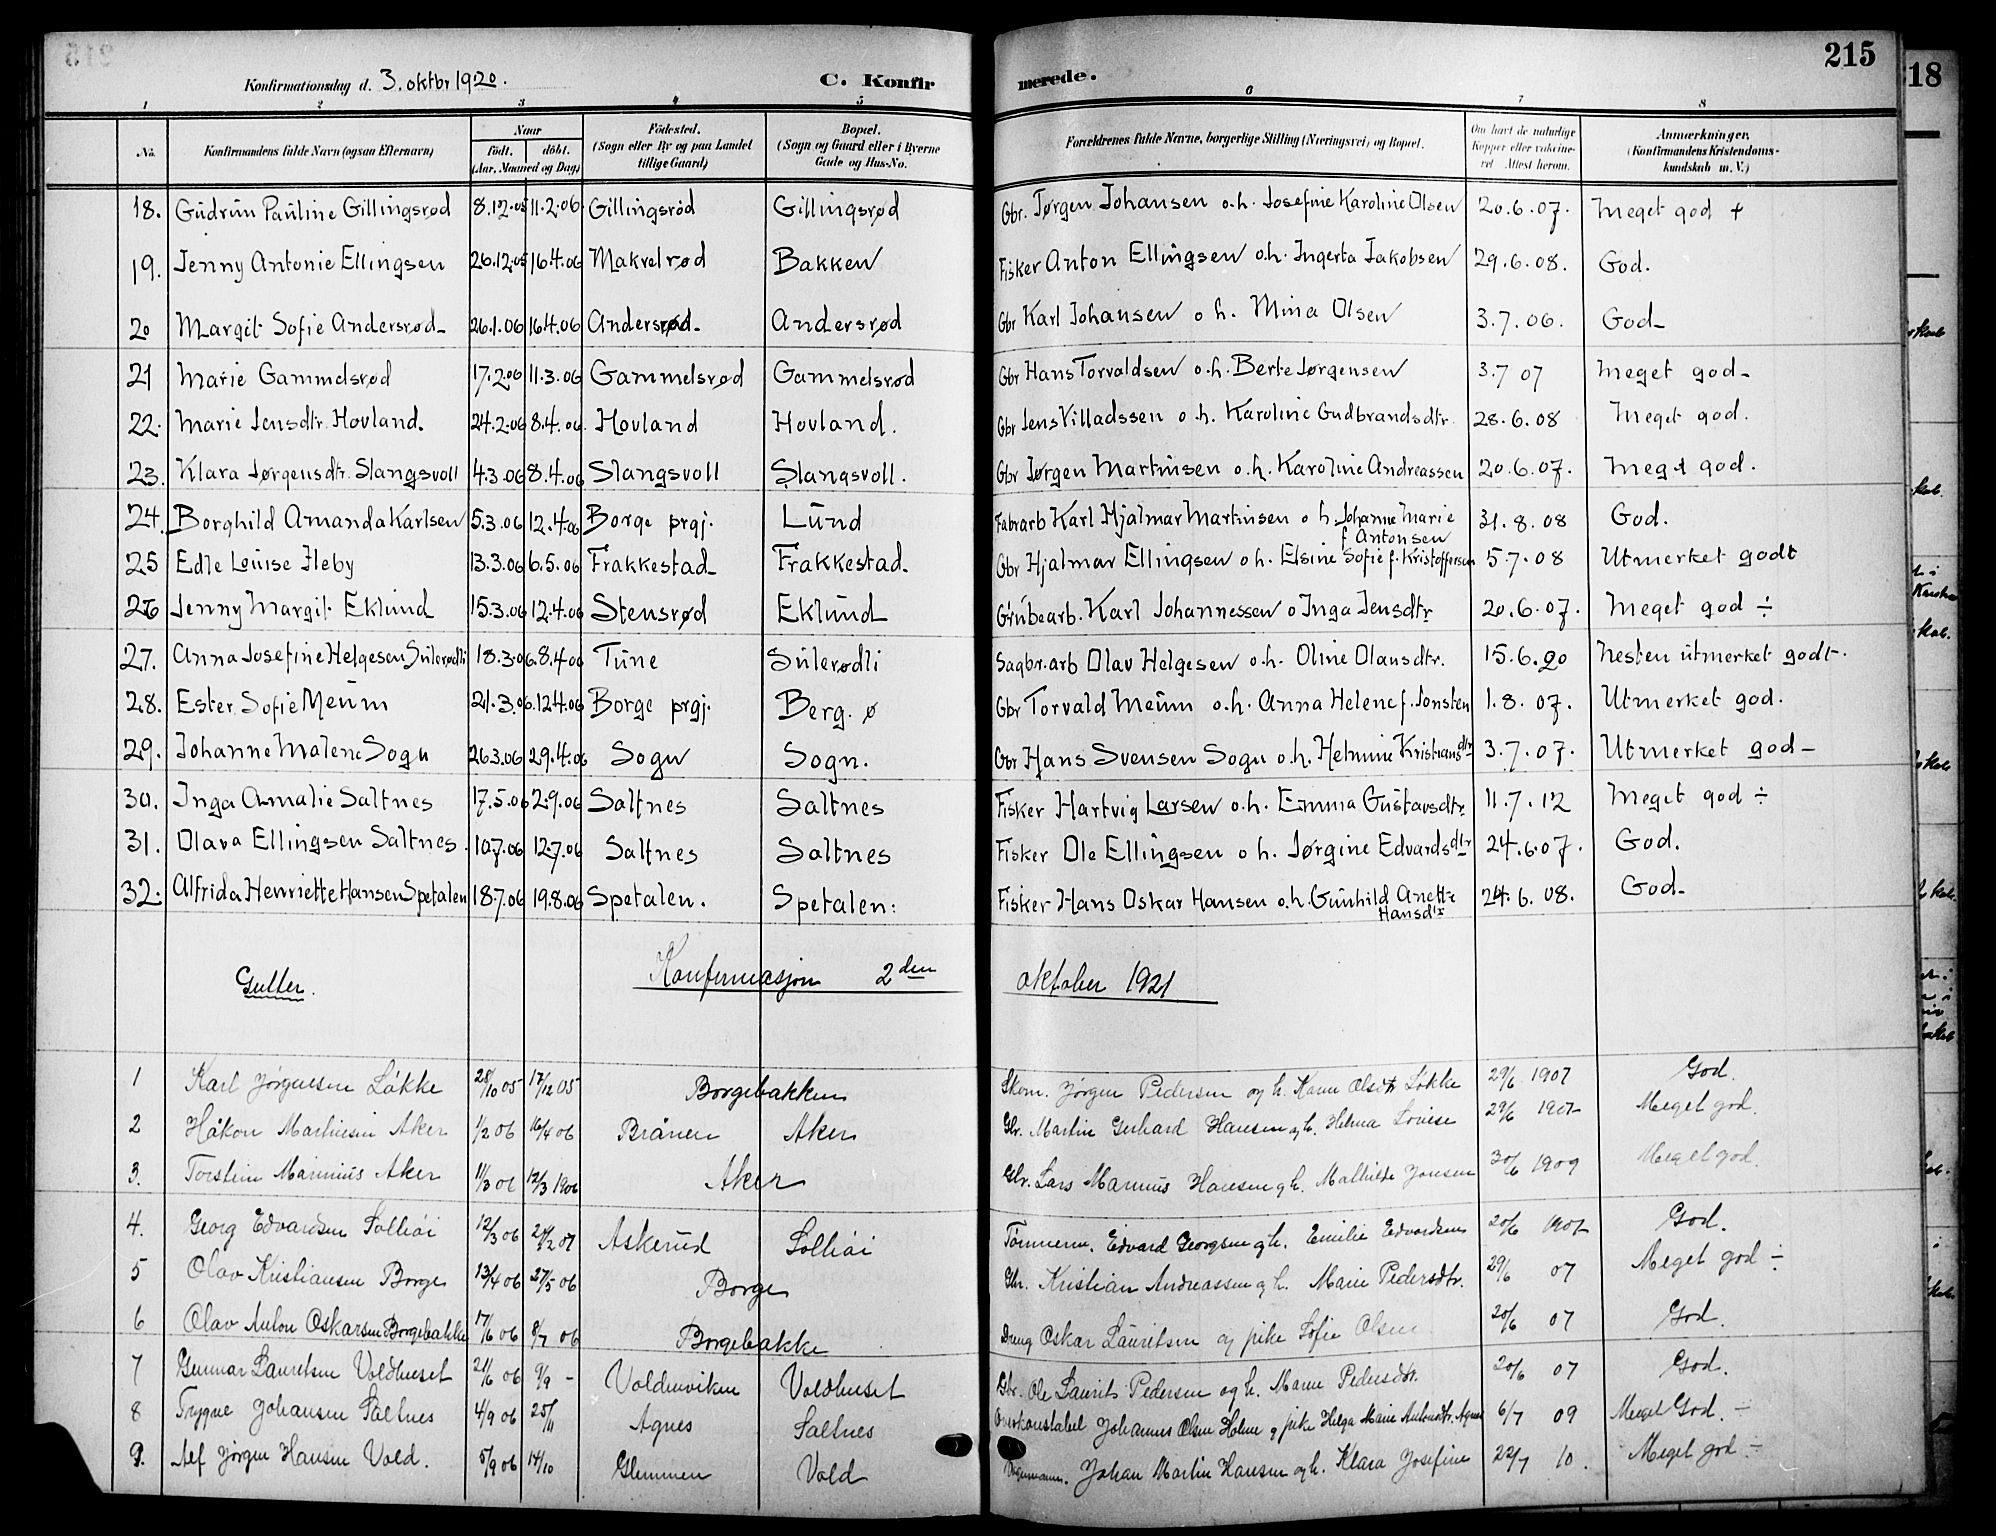 Konfirmationsdag d. 3. oktbr 1920. C. Konfirmerede. 215
1 2 3 4 5 6 7 8
No. Konfirmandens fulde Navn (ogsaa Efternavn) Naar födt. döbt. (Aar, Maaned og Dag) Födested. (Sogn eller By og paa Landet tillige Gaard) Bopæl. (Sogn og Gaard eller i Byerne Gade og Hus-No. Forældrenes fulde Navne, borgerlige Stilling (Næringsvei) og Bopæl. Om havt de naturlige Kopper eller vakcineret Attest herom. Anmærkninger. (Konfirmandens Kristendomskundskab m. V.)
18. Gudrun Pauline Gillingsrød 8.12.05 11.2.06 Gillingsrød Gillingsrød Gbr. Jørgen Johansen o.h. Josefine Karoline Olsen 20.6.07. Meget god +
19. Jenny Antonie Ellingsen 26.12.05 16.4.06 Makrelrød Bakken Fisker Anton Ellingsen o.h. Ingerta Jakobsen 29.6.08. God.
20 Margit Sofie Andersrød 26.1.06 16.4.06 Andersrød Andersrød Gbr Karl Johansen o h. Mina Olsen 3.7.06. God
21 Marie Gammelsrød 17.2.06 11.3.06 Gammelsrød Gammelsrød Gbr Hans Torvaldsen o.h. Berte Jørgensen 3.7 07 Meget god
22. Marie Jensdtr. Hovland. 24.2.06 8.4.06. Hovland Hovland. Gbr Jens Villadssen o.h. Karoline Gudbrandsdtr 28.6.08 Meget god.
23. Klara Jørgensdtr. Slangsvoll 4.3.06 8.4.06 Slangsvoll Slangsvoll. Gbr Jørgen Martinsen o.h. Karoline Andreassen 20.6.07. Meget god.
24. Borghild Amanda Karlsen 5.3.06 12.4.06 Borge prgj. Lund Fabrarb Karl Hjalmar Martinsen o h. Johanne Marie f Antonsen 31.8.08 God.
25 Edle Louise Ileby 13.3.06 6.5.06 Frakkestad Frakkestad. Gbr Hjalmar Ellingsen o.h. Elsine Sofie f. Kristoffersen 5.7.08 Utmerket godt
26 Jenny Margit Eklund 15.3.06 12.4.06 Stensrød Eklund Grubearb. Karl Johannessen o Inga Jensdtr 20.6.07. Meget god ÷
27. Anna Josefine Helgesen Sulerødli 18.3.06. 8.4.06 Tune Sulerødli Sagbr.arb Olav Helgesen o.h. Oline Olausdtr. 15.6.20 Nesten utmerket godt.
28. Ester Sofie Meum 21.3.06. 12.4.06 Borge prgj. Berg. ø Gbr Torvald Meum o.h. Anna Helene f. Jonsten 1.8.07. Utmerket god.
29. Johanne Malene Sogn 26.3.06 29.4.06 Sogn Sogn. Gbr Hans Svensen Sogn o.h. Helmine Kristiansdtr 3.7.07. Utmerket god
30. Inga Amalie Saltnes 17.5.06 2.9.06 Saltnes Saltnes Fisker Hartvig Larsen o.h. Emma Gustavsdtr. 11.7.12 Meget god ÷
31. Olava Ellingsen Saltnes. 10.7.06 12.7.06 Saltnes Saltnes Fisker Ole Ellingsen o h. Jørgine Edvardsdtr 24.6.07. God.
32. Alfrida Henriette Hansen Spetalen 18.7.06 19.8.06 Spetalen. Spetalen: Fisker Hans Oskar Hansen o.h. Gunhild Anette Hansdtr 24.6.08. God
Gutter. Konfirmasjon 2den oktober 1921
1 Karl Jörgensen Løkke 28/10 05 17/12 05 Borgebakken Skom. Jörgen Pedersen og h. Karen Olsdtr Løkke 29/6 1907 God.
2 Håkon Martinsen Aker 1/2 06 16/4 06 Brånen Aker Gbr. Martin Gerhard Hansen og h. Helma Lovise 29/6 1907 Meget god.
3. Torstein Marinius Aker 11/3 06 12/3 1906 Aker Gbr. Lars Marinus Hansen og h. Mathilde Jonsen 30/6 1909 Meget god.
4. Georg Edvardsen Solhøi 12/3 06 Askerud Solhøi Tömmerm. Edvard Georgsen og h. Emilie Edvardsen 20/6 1907 God.
5 Olav Kristiansen Borge 13/4 06 27/5 06 Borge Gbr. Kristian Andreassen og h. Marie Pedersdtr. 29/6 07 Meget god ÷
6 Olav Anton Oskarsen Borgebakke 17/6 06 8/7 06 Borgebakke Dreng Oskar Lauritsen og pike Sofie Olsen 20/6 07 God.
7 Gunnar Lauritsen Voldhuset 21/6 06 9/9 - Voldenviken Voldhuset Gbr. Ole Laurits Pedersen og h. Maren Pedersdtr. 20/6 07 God.
8 Trygve Johansen Saltnes 4/9 06 25/11 Agnes Saltnes Overkonstabel Johannes Olsen Holme og pike Helga Marie Antonsdtr. Agnes 6/7 09 Meget God. ÷
9. Alf Jörgen Hansen Vold. 5/9 06 14/10 Glemmen Vold Johan Martin Hansen og h. Klara Josefine 22/7 10. Meget god ÷